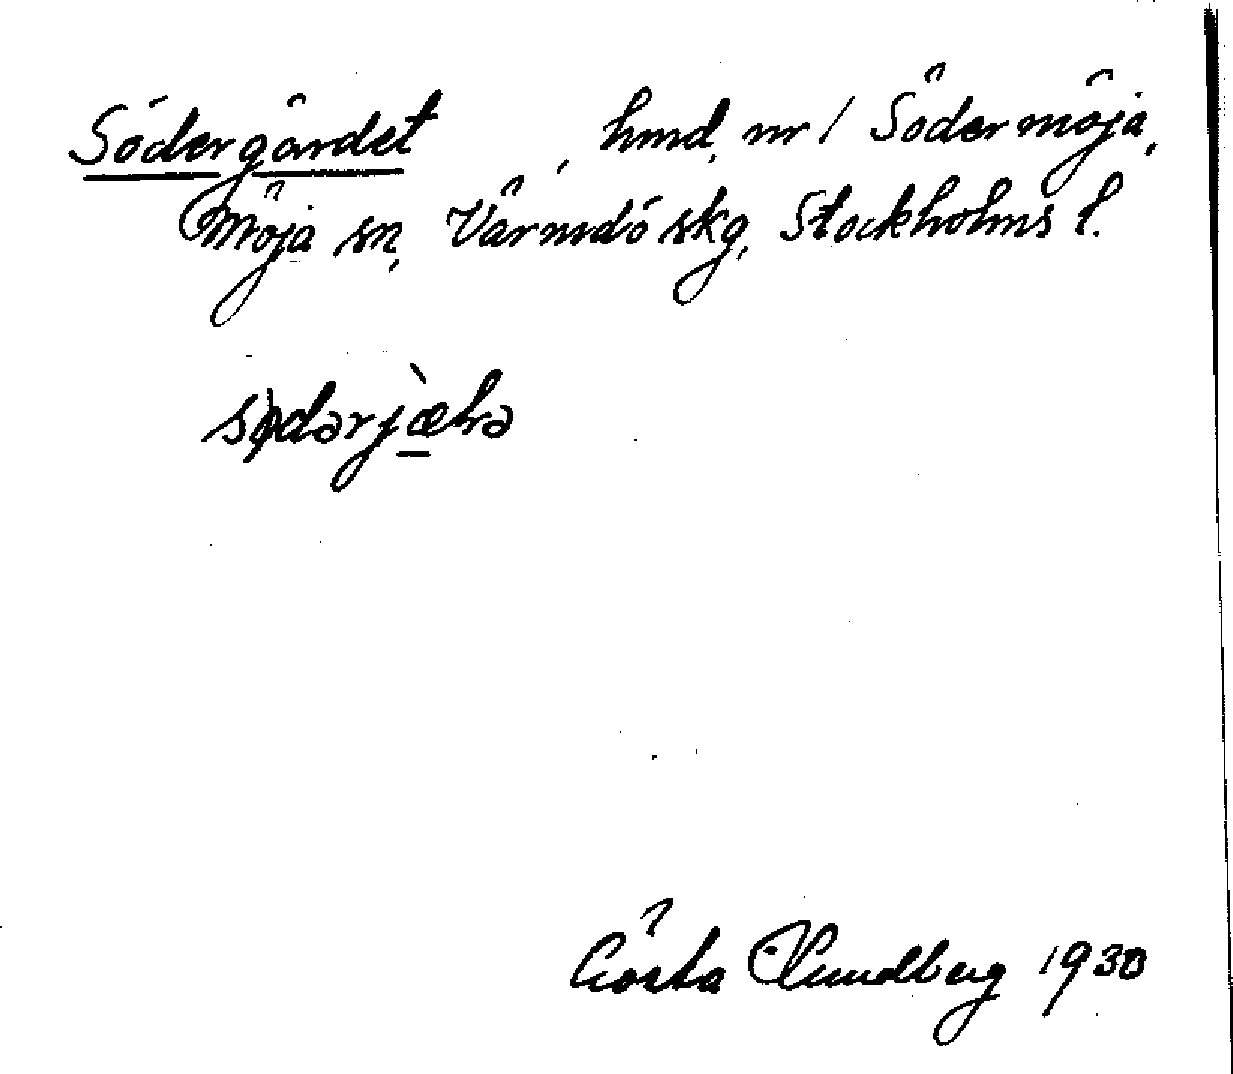 Södergärdet, hmd, nr 1 Södermöja,
Möja sn, Värmdö skg, Stockholms l.
sødərjæ̀lə
Gösta Lundberg 1930